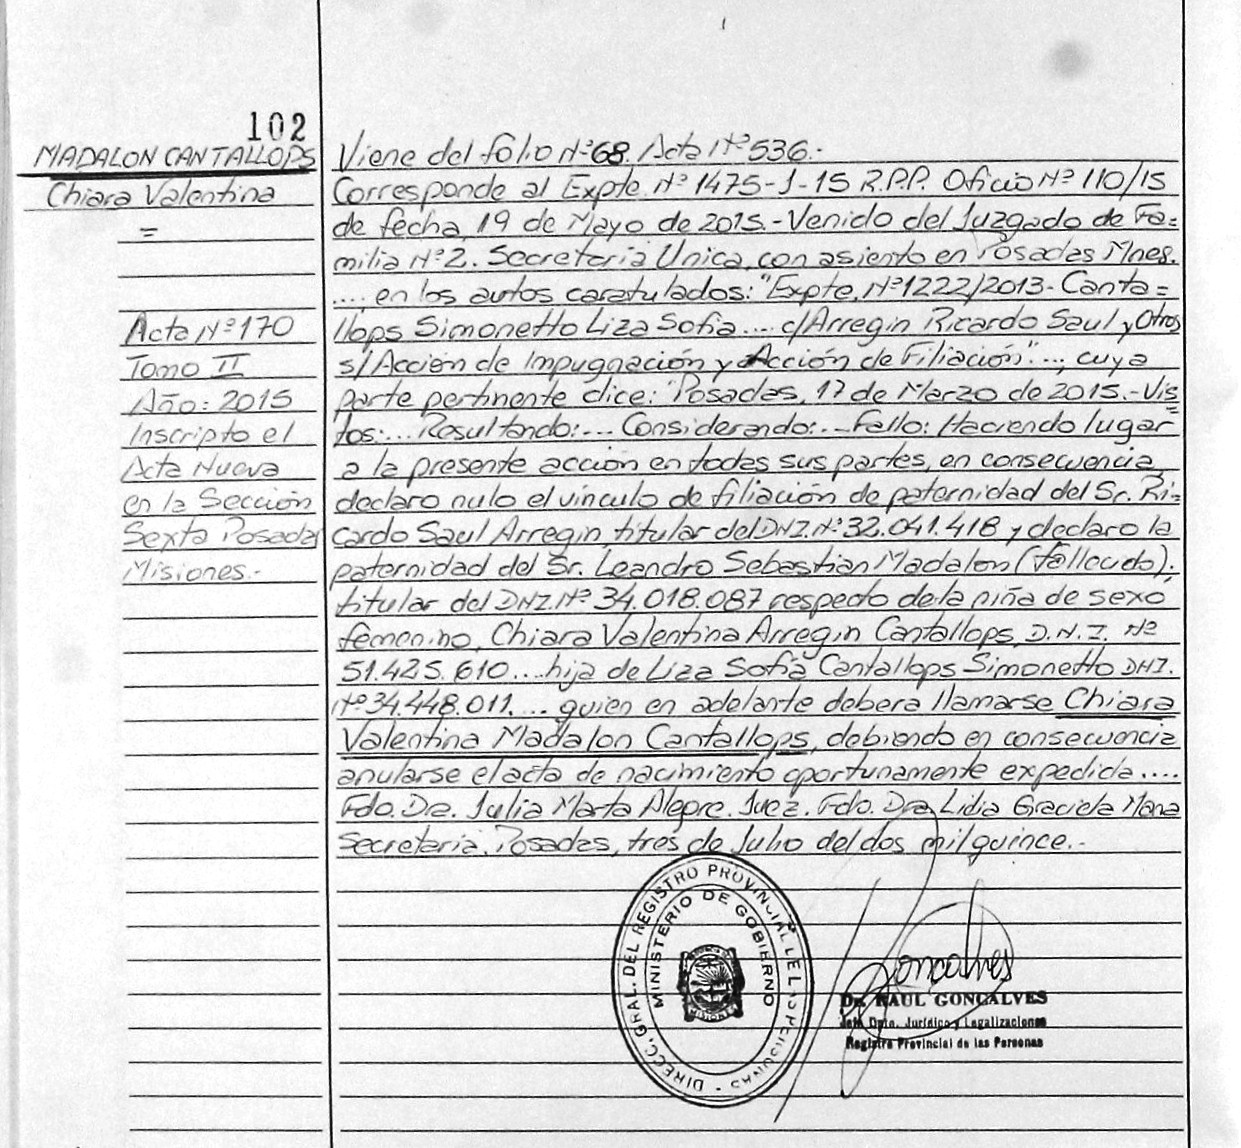 102
MADALON CANTALLOPS
Chiara Valentina
=
Acta Nº 170
Tomo II
Año: 2015
Inscripto el
Acta Nueva
en la Sección
Sexta Posadas
Misiones.-
Viene del folio Nº 68. Acta Nº 536.-
Corresponde al Expte. Nº 1475-J-15 R.P.P. Oficio Nº 110/15
de fecha, 19 de Mayo de 2015.- Venido del Juzgado de Fa=
milia Nº 2. Secretaria Unica, con asiento en Posadas Mnes.
.... en los autos caratulados: "Expte. Nº 1222/2013- Canta=
llops Simonetto Liza Sofia.... c/Arregin Ricardo Saul y Otros
s/Acción de Impugnación y Acción de Filiación"..., cuya
parte pertinente dice: "Posadas, 17 de Marzo de 2015.- Vis=
tos:.... Resultando:.... Considerando:... Fallo: Haciendo lugar
a la presente acción en todas sus partes, en consecuencia,
declaro nulo el vínculo de filiación de paternidad del Sr. Ri=
cardo Saul Arregin, titular del DNI. Nº 32.041.418 y declaro la
paternidad del Sr. Leandro Sebastian Madalon (fallecido),
titular del DNI. Nº 34.018.087 respecto de la niña de sexo
femenino, Chiara Valentina Arregin Cantallops, D.N.I. Nº
51.425.610.... hija de Liza Sofía Cantallops Simonetto DNI.
Nº 34.448.011.... quien en adelante debera llamarse Chiara
Valentina Madalon Cantallops, debiendo en consecuencia
anularse el acta de nacimiento oportunamente expedida....
Fdo. Dra. Julia Marta Alegre. Juez. Fdo. Dra. Lidia Graciela
Secretaria. Posadas, tres de Julio del dos mil quince.-
DIRECC. GRAL. DEL REGISTRO PROVINCIAL DE LAS PERSONAS
MINISTERIO DE GOBIERNO
MISIONES
Goncalves
Dr. RAUL GONCALVES
Jefe Dpto. Jurídico y Legalizaciones
Registro Provincial de las Personas